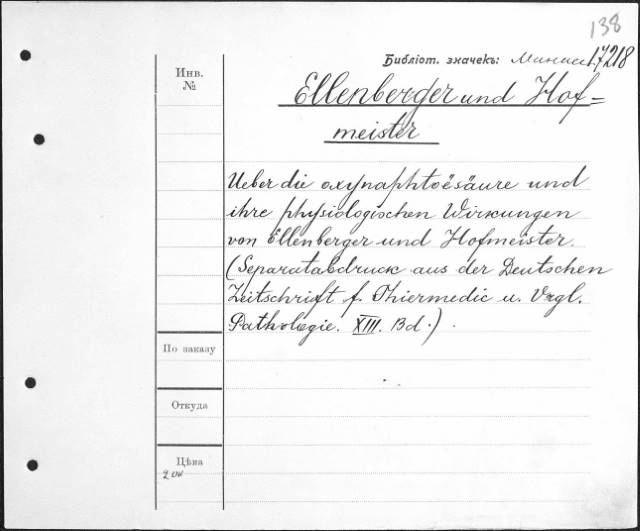 138
Инв. №
Библіот. значекъ: 17218
Ellenberger und Hof=
meister
Ueber die oxynaphtoësäure und
ihre physiologischen Wirkungen
von Ellenberger und Hofmeister.
(Separatabdruck aus der Deutschen
Zeitschrift f. Thiermedic u. Vrgl.
Pathologie. XIII. Bd.).
По заказу
Откуда
Цѣна